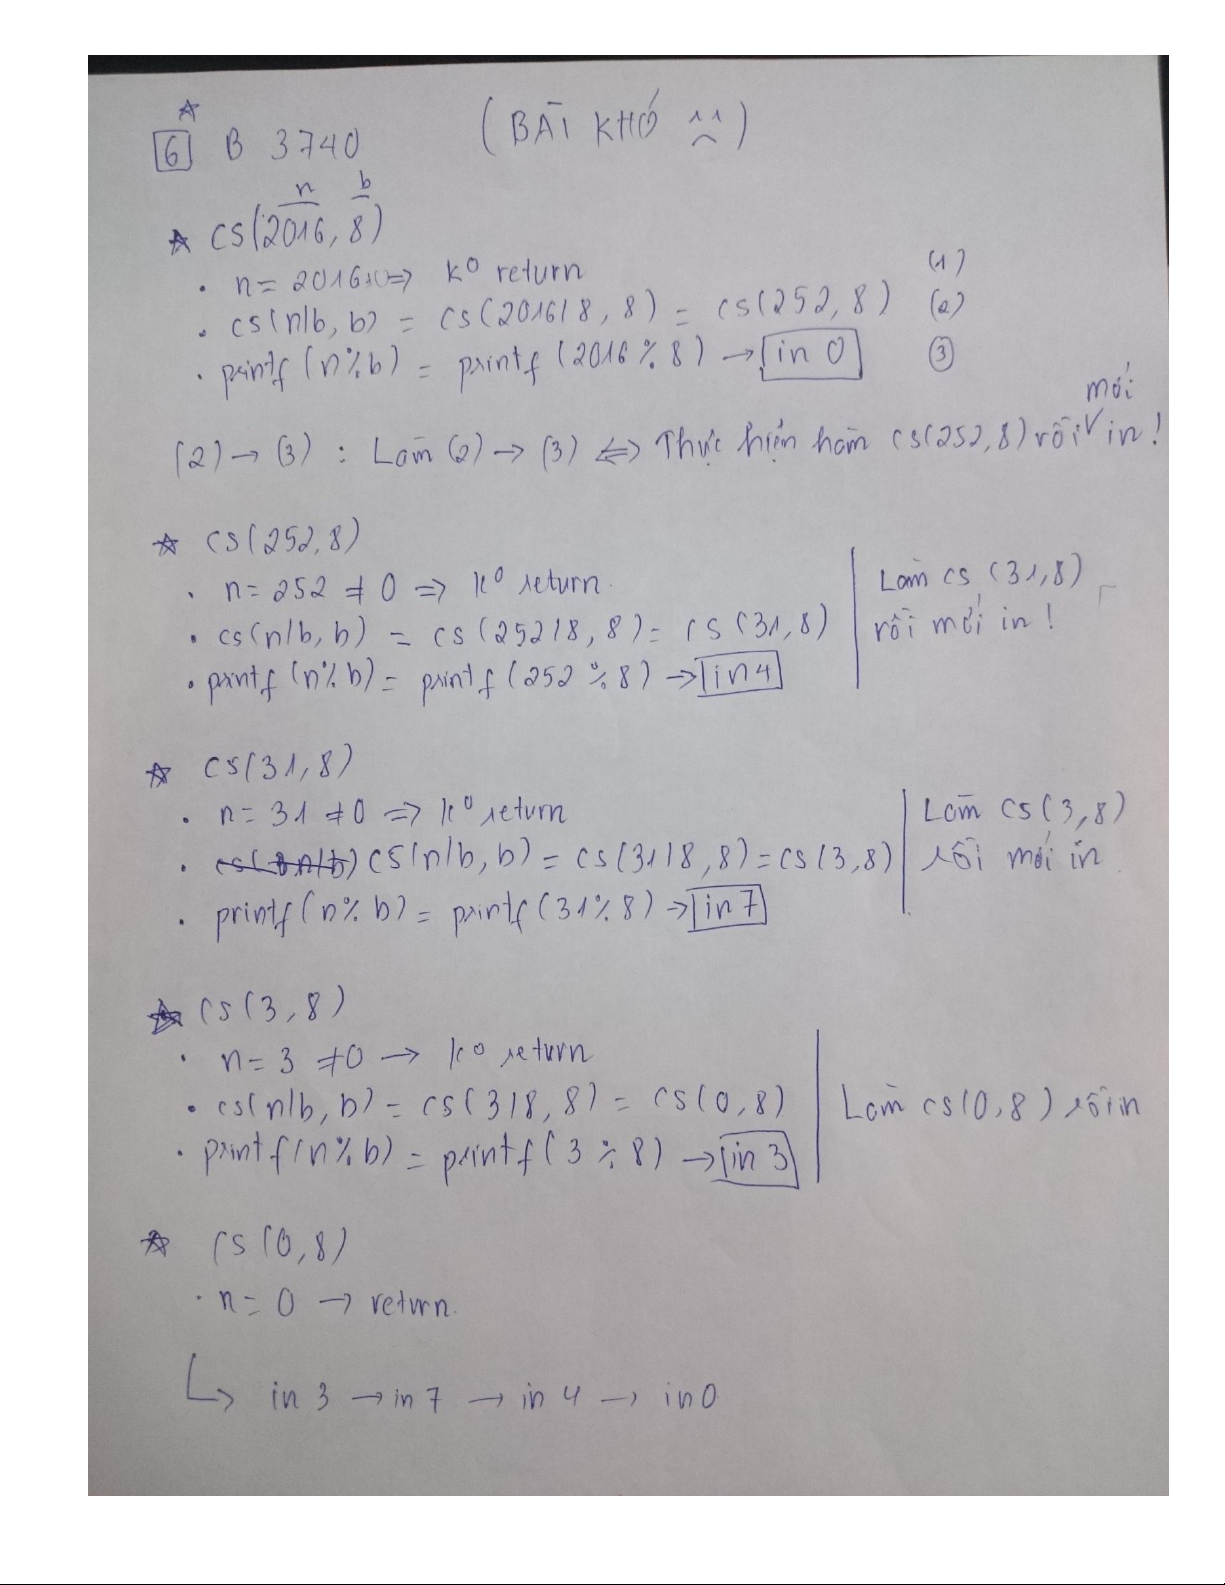 ☆
[6] B 3740 (BÀI KHÓ ^^)
n b
☆ cs(2016, 8)
• n = 2016≠0 => k° return (1)
• cs(n/b, b) = cs(2016/8, 8) = cs(252, 8) (2)
• printf(n%b) = printf(2016%8) → in 0 (3)
mới
(2) → (3) : Làm (2) → (3) <=> Thực hiện hàm cs(252,8) rồi in !
☆ cs(252,8)
• n = 252 ≠ 0 => k° return.
• cs(n/b, b) = cs(252/8, 8) = cs(31,8)
• printf(n%b) = printf(252%8) → in 4
Làm cs (31,8)
rồi mới in !
☆ cs(31,8)
• n = 31 ≠0 => k° return
• cs(n/b, b) = cs(31/8,8) = cs(3,8)
• printf(n%b) = printf(31%8) → in 7
Làm cs(3,8)
rồi mới in
☆ cs(3,8)
• n = 3 ≠0 → k° return
• cs(n/b, b) = cs(3/8, 8) = cs(0,8)
• printf(n%b) = printf(3%8) → in 3
Làm cs(0,8) rồi in
☆ cs(0,8)
• n = 0 → return.
↳ in 3 → in 7 → in 4 → in 0